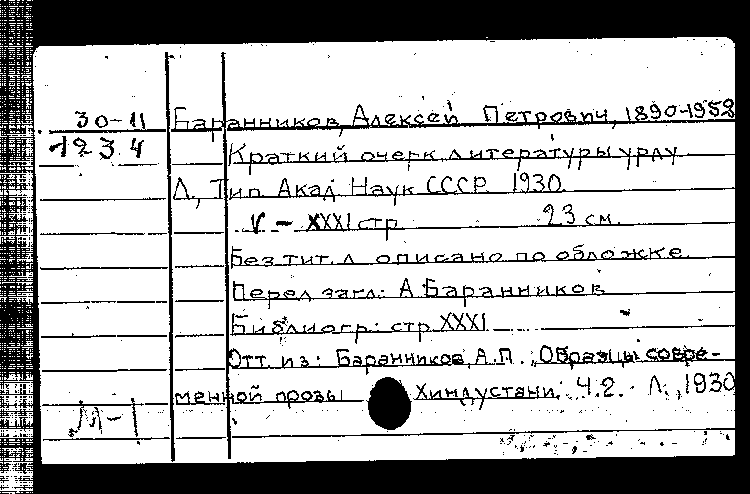 30-11 Баранников, Алексей Петрович, 1890-1952
1234 Краткий очерк литературы урду
Л., Тип. Акад. Наук СССР 1930.
V - XXXI стр. 23 см.
Без тит. л. описано по обложке.
Перед загл.: А. Баранников
Библиогр.: стр. XXXI
Отт. из: Баранников, А.П. Образцы совре-
менной прозы Хиндустани, Ч.2. Л., 1930
М-1